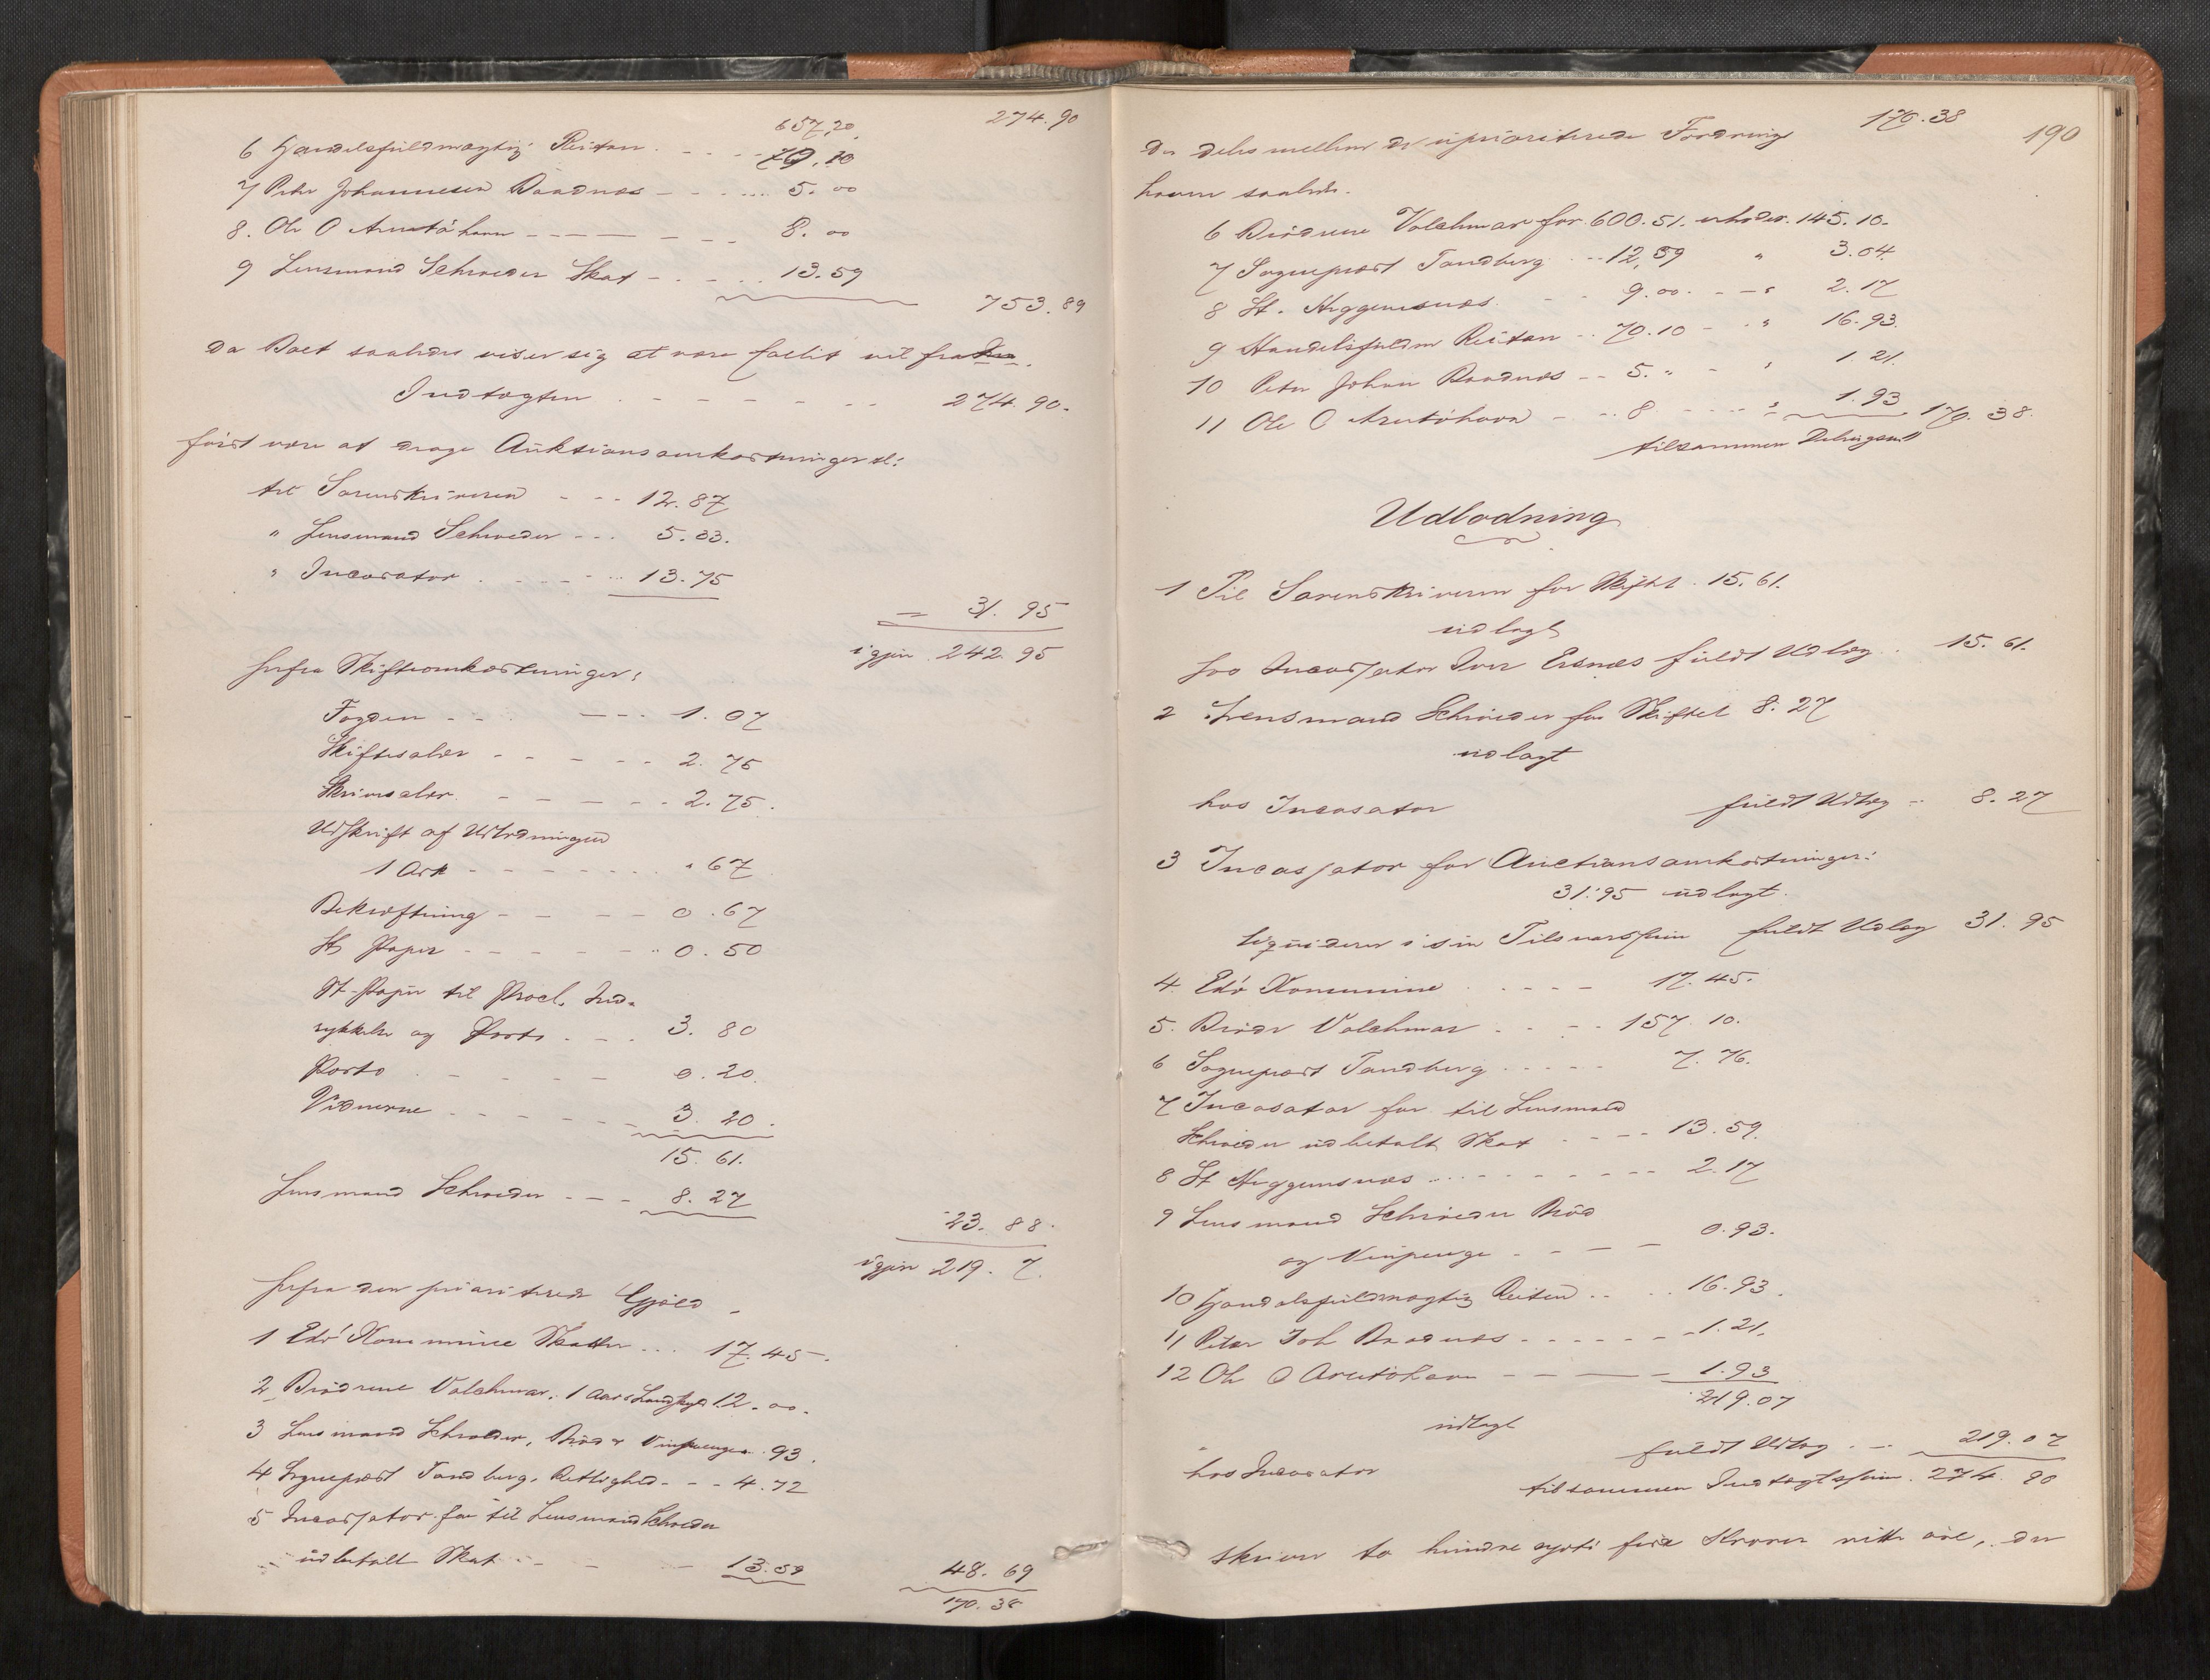 657.20 274.90
6 Handelsfuldmægtig Reitan - - - 70.10
7 Peter Johannesen Baadnæs - - - 5.00
8. Ole O Arentshavn - - - 8.00
9 Lensmand Schrøder Skat - - - 13.59
753.89
da Boet saaledes viser sig at være fallit vil fra
Indtægten - - - 274.90.
først være at drage Auktionsomkostninger til:
til Sorenskriveren - - - 12.87
" Lensmand Schrøder - - - 5.33.
" Incasator - - - 13.75
= 31.95
igjen 242.95
herfra Skifteomkostninger:
Fogden - - - 1.07
Skiftesalær - - - 2.75
Skrivesalær - - - 2.75.
Udskrift af Udlodningen
1 Ark - - - " 67
Bekræftning - - - 0.67
St Papir - - - 0.50
St-Papir til Procl. Ind-
rykkelse og Porto - - - 3.80
Porto - - - 0.20.
Vidnerne - - - 3.20.
15.61.
Lensmand Schrøder - - - 8.27
23.88.
igjen 219.7.
herfra den prioriterede Gjæld -
1 Edø Kommune Skatter - - - 17.45-.
2 Brødrene Volckmar, 1 Aars Landskyld 12.00.
3 Lensmand Schrøder, Brød & Vinpenge . 93.
4 Sognepræst Tandberg, Rettighed - - - 4.72
5 Incassator for til Lensmand Schrøder
udbetalt Skat - - - 13.59
48.69
170.38
190
170.38
der deles mellem de uprioriterede Fordrings
havere saaledes.
6 Brødrene Volckmar for 600.51. erholder 145.10.
7 Sognepræst Tandberg - - 12,59 " 3.04.
8 St. Heggemsnæs - - 9.00 - - " 2.17
9 Handelsfuldm Reitan - - 70.10 - " 16.93.
10 Peter Johan Baadnæs - - 5. " - " 1 21.
11 Ole O Arentshavn - - - 8 - - - " 1.93 170.38.
tilsammen
Udlodning
1 Til Sorenskriveren for Skiftet . 15.61.
udlagt
hos Incassator Iver Ersnæs fuldt Udlæg . 15.61.
2 Lensmand Schrøder for Skiftet 8.27
udlagt
hos Incasator fuldt Udlæg - 8.27
3 Incassator for Auctionsomkostninger:
31.95 udlagt.
liqviderer i sin Tilsvarssum fuldt Udlæg 31.95
4. Edø Kommune - - - 17.45.
5. Brødr Volckmar - - - 157.10.
6 Sognepræst Tandberg - - - 7.76.
7 Incasator for til Lensmand
Schrøder udbetalt Skat - - - 13.59.
8 St Heggemsnæs - - - 2.17
9 Lensmand Schrøder Brød
og Vinpenge - - - 0.93.
10 Handelsfuldmægtig Reitan - - - 16.93.
11 Peter Joh Baadnæs - - - 1.21.
12 Ole O Arentshavn - - - 1.93
219.07
udlagt
hos Incasator fuldt Udlæg - - 219.07
tilsammen Indtægtssum . 274.90
skriver to hundre sytti fire Kroner nitti øre, der